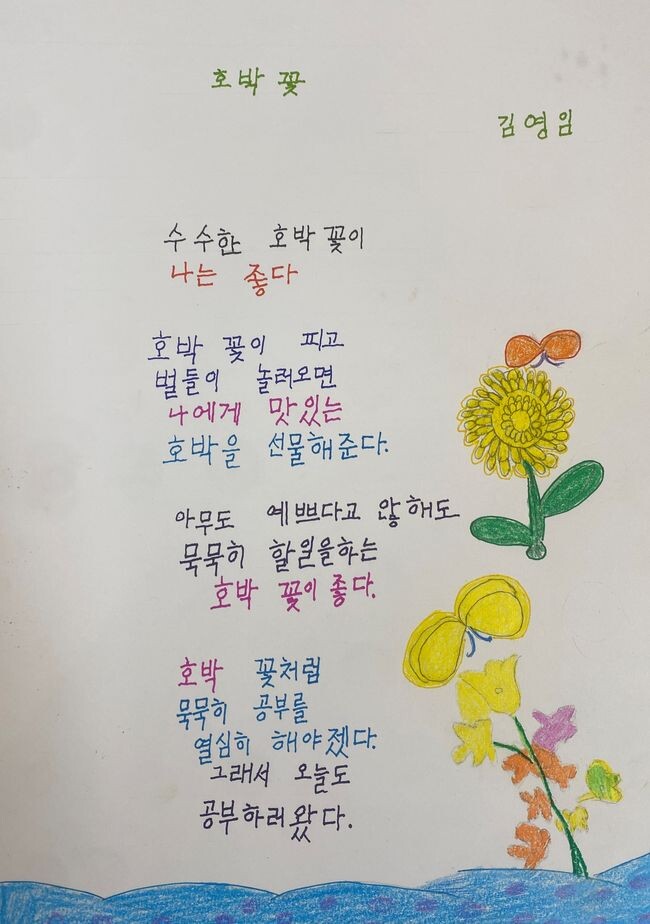 호박 꽃
김영임
수수한 호박 꽃이
나는 좋다
호박 꽃이 피고
벌들이 놀러오면
나에게 맛있는
호박을 선물해준다.
아무도 예쁘다고 않해도
묵묵히 할일을하는
호박 꽃이 좋다.
호박 꽃처럼
묵묵히 공부를
열심히 해야겠다.
그래서 오늘도
공부하러왔다.